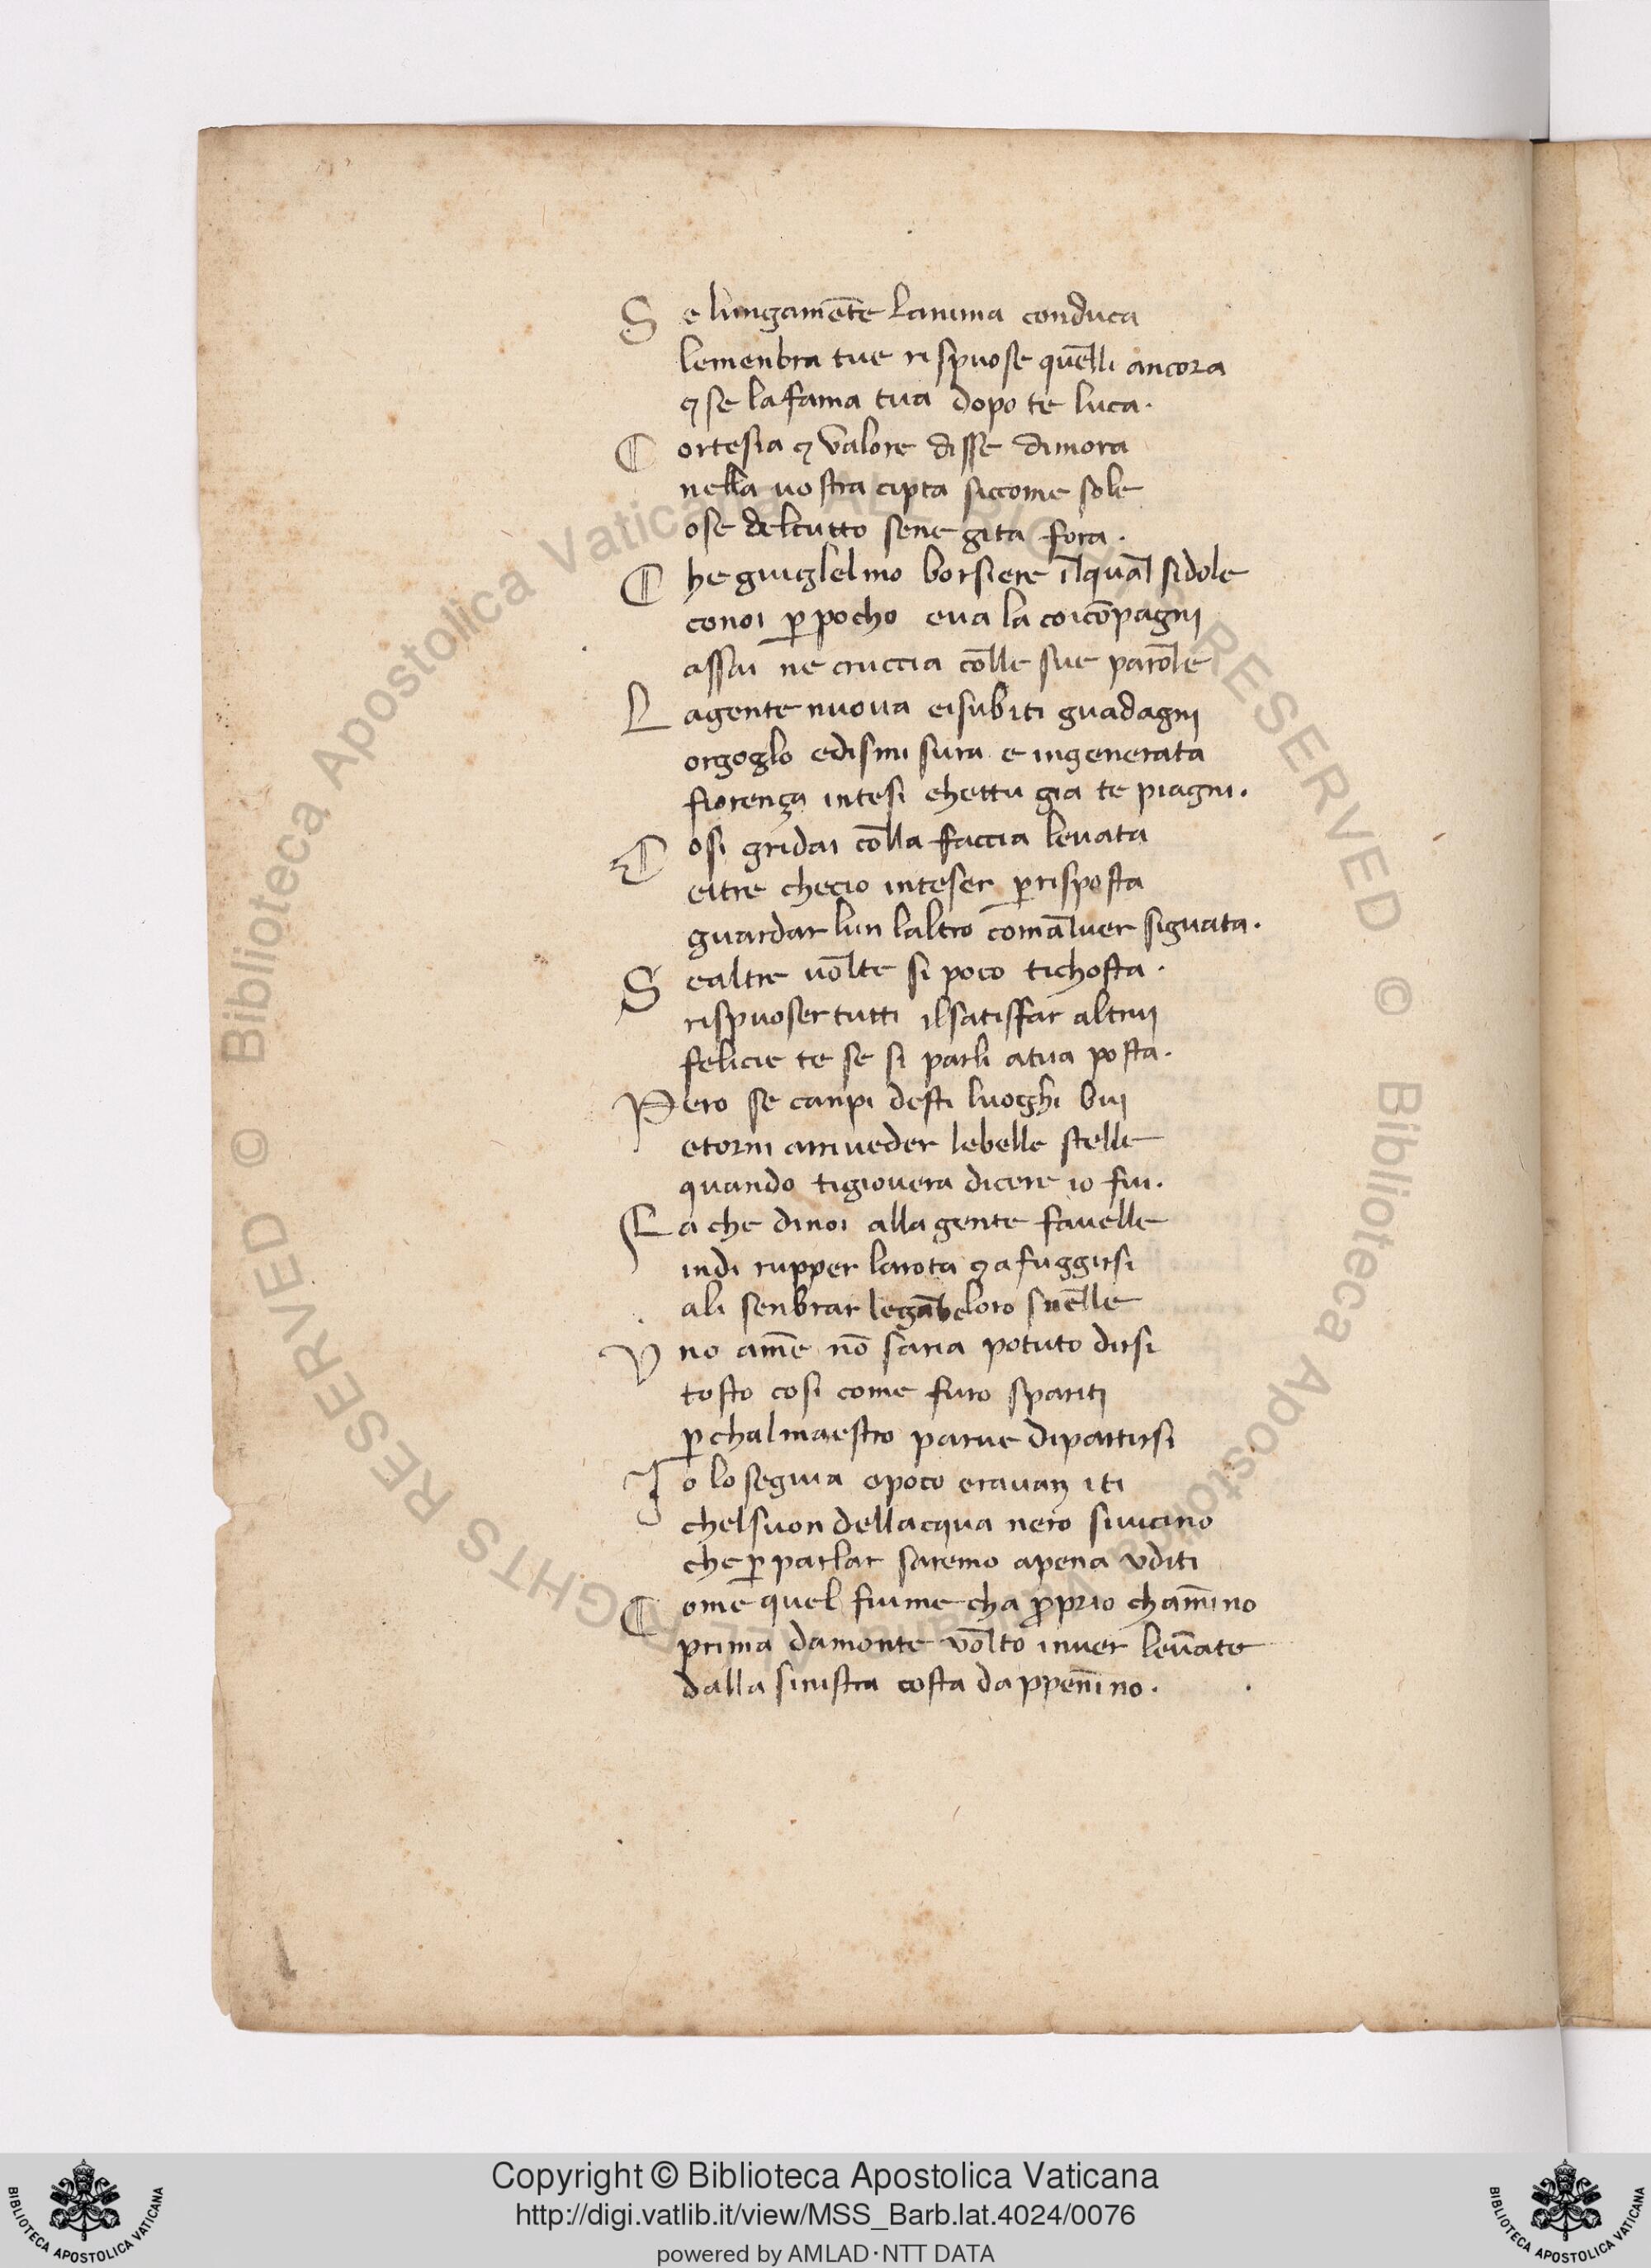 Se lungamēte lanima conduca
lemenbra tue rispuose quēlli ancora
⁊ se lafama tua dopo te luca.
Cortesia ⁊ valore disse dimora
nella uostra cipta siccome sole
ose deltutto sene gita fora.
Che guiglelmo borsiere īlquāl sidole
conoi ꝑ pocho eua la coicōpagnj
assai ne cruccia cōlle sue parōle
Lagente nuoua eisubiti guadagnj
orgoglo edismisura e ingenerata
fiorença intesi chettu gia te piagni.
Cosi gridai cōlla faccia leuata
eitre checio inteser ꝑrisposta
guardar lun laltro comāluer siguata.
Sealtre uōlte si poco tichosta.
rispuoser tutti ilsatisffar altruj
felicie te se si parli atua posta.
Pero se canpi desti luoghi buj
etorni arriueder lebelle stelle
quando tigiouera dicere io fui.
Fa che dinoi alla gente fauelle
indi rupper larota ⁊ a fuggirsi
ali senbrar legābeloro snēlle
Vno amē nō saria potuto dirsi
tosto cosi come furo sparitj
ꝑchalmaestro parue dipartirsi
Io lo seguia epoco erauam iti
chelsuon dellacqua nero siuicino
che ꝑ parlar saremo apena vditi
Come quel fiume cha ꝓprio chamīno
prima damonte vōlto inuer leuāte
dalla sinistra costa dappenīno.
Copyright © Biblioteca Apostolica Vaticana
http://digi.vatlib.it/view/MSS_Barb.lat.4024/0076
powered by AMLAD·NTT DATA
BIBLIOTECA APOSTOLICA VATICANA
BIBLIOTECA APOSTOLICA VATICANA